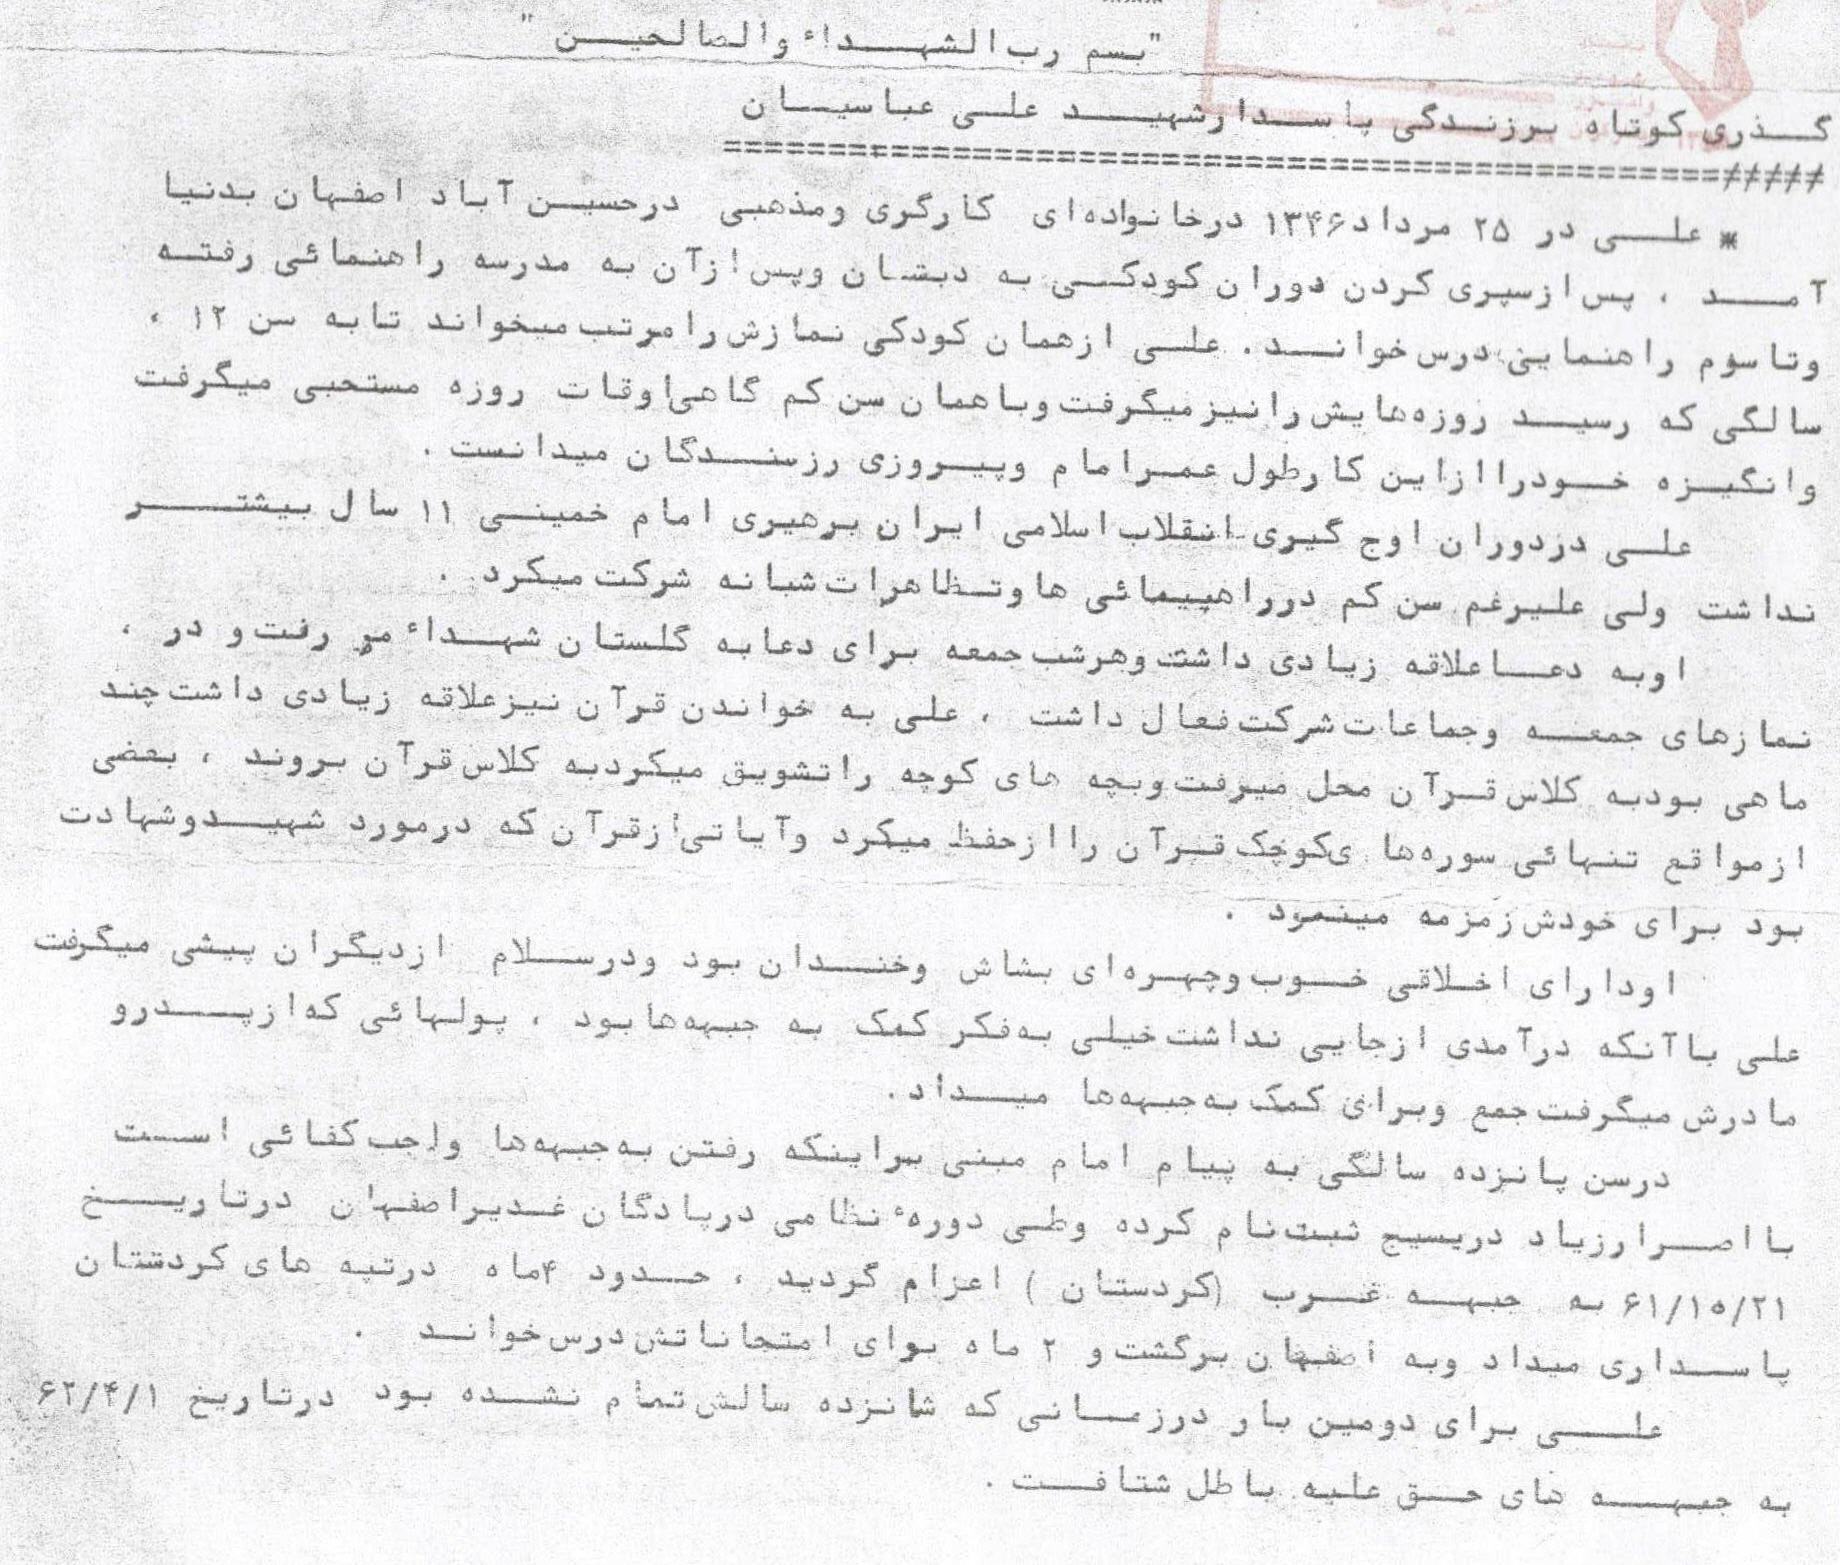 "بسم رب الشهداء والصالحین"
گذری کوتاه برزندگی پاسدارشهید علی عباسیان
* علی در ۲۵ مرداد ۱۳۴۶ درخانواده‌ای کارگری ومذهبی درحسین آباد اصفهان بدنیا
آمد ، پس ازسپری کردن دوران کودکی به دبشان وپس ازآن به مدرسه راهنمائی رفته
وتاسوم راهنمایی درس خواند . علی ازهمان کودکی نمازش رامرتب میخواند تابه سن ۱۲ ،
سالگی که رسید روزه‌هایش رانیزمیگرفت وباهمان سن کم گاهی اوقات روزه مستحبی میگرفت
وانگیزه خودراازاین کارطول عمرامام وپیروزی رزمندگان میدانست .
علی دردوران اوج گیری انقلاب اسلامی ایران برهبری امام خمینی ۱۱ سال بیشتر
نداشت ولی علیرغم سن کم درراهپیمائی هاوتظاهرات شبانه شرکت میکرد .
اوبه دعاعلاقه زیادی داشت وهرشب جمعه برای دعابه گلستان شهداء می رفت و در ،
نمازهای جمعه وجماعات شرکت فعال داشت ، علی به خواندن قرآن نیزعلاقه زیادی داشت چند
ماهی بودبه کلاس قرآن محل میرفت وبچه های کوچه راتشویق میکردبه کلاس قرآن بروند ، بعضی
ازمواقع تنهائی سوره‌ها ی‌کوچک قرآن راازحفظ میکرد وآیاتی ازقرآن که درمورد شهیدوشهادت
بود برای خودش زمزمه مینمود .
اودارای اخلاقی خوب وچهره‌ای بشاش وخندان بود ودرسلام ازدیگران پیشی میگرفت
علی باآنکه درآمدی ازجایی نداشت خیلی به‌فکر کمک به جبهه‌هابود ، پولهائی که‌ازپدرو
مادرش میگرفت جمع وبرای کمک به‌جبهه‌ها میداد .
درسن پانزده سالگی به پیام امام مبنی براینکه رفتن به‌جبهه‌ها واجب کفائی است
بااصرارزیاد دربسیج ثبت‌نام کرده وطی دورهٔ نظامی درپادگان غدیراصفهان درتاریخ
۶۱/۱۰/۲۱ به جبهه غرب (کردستان ) اعزام گردید ، حدود ۴ماه درتپه های کردستان
پاسداری میداد وبه اصفهان برگشت و ۲ ماه برای امتحاناتش درس خواند .
علی برای دومین بار درزمانی که شانزده سالش تمام نشده بود درتاریخ ۶۲/۴/۱
به جبهه های حق علیه باطل شتافت .